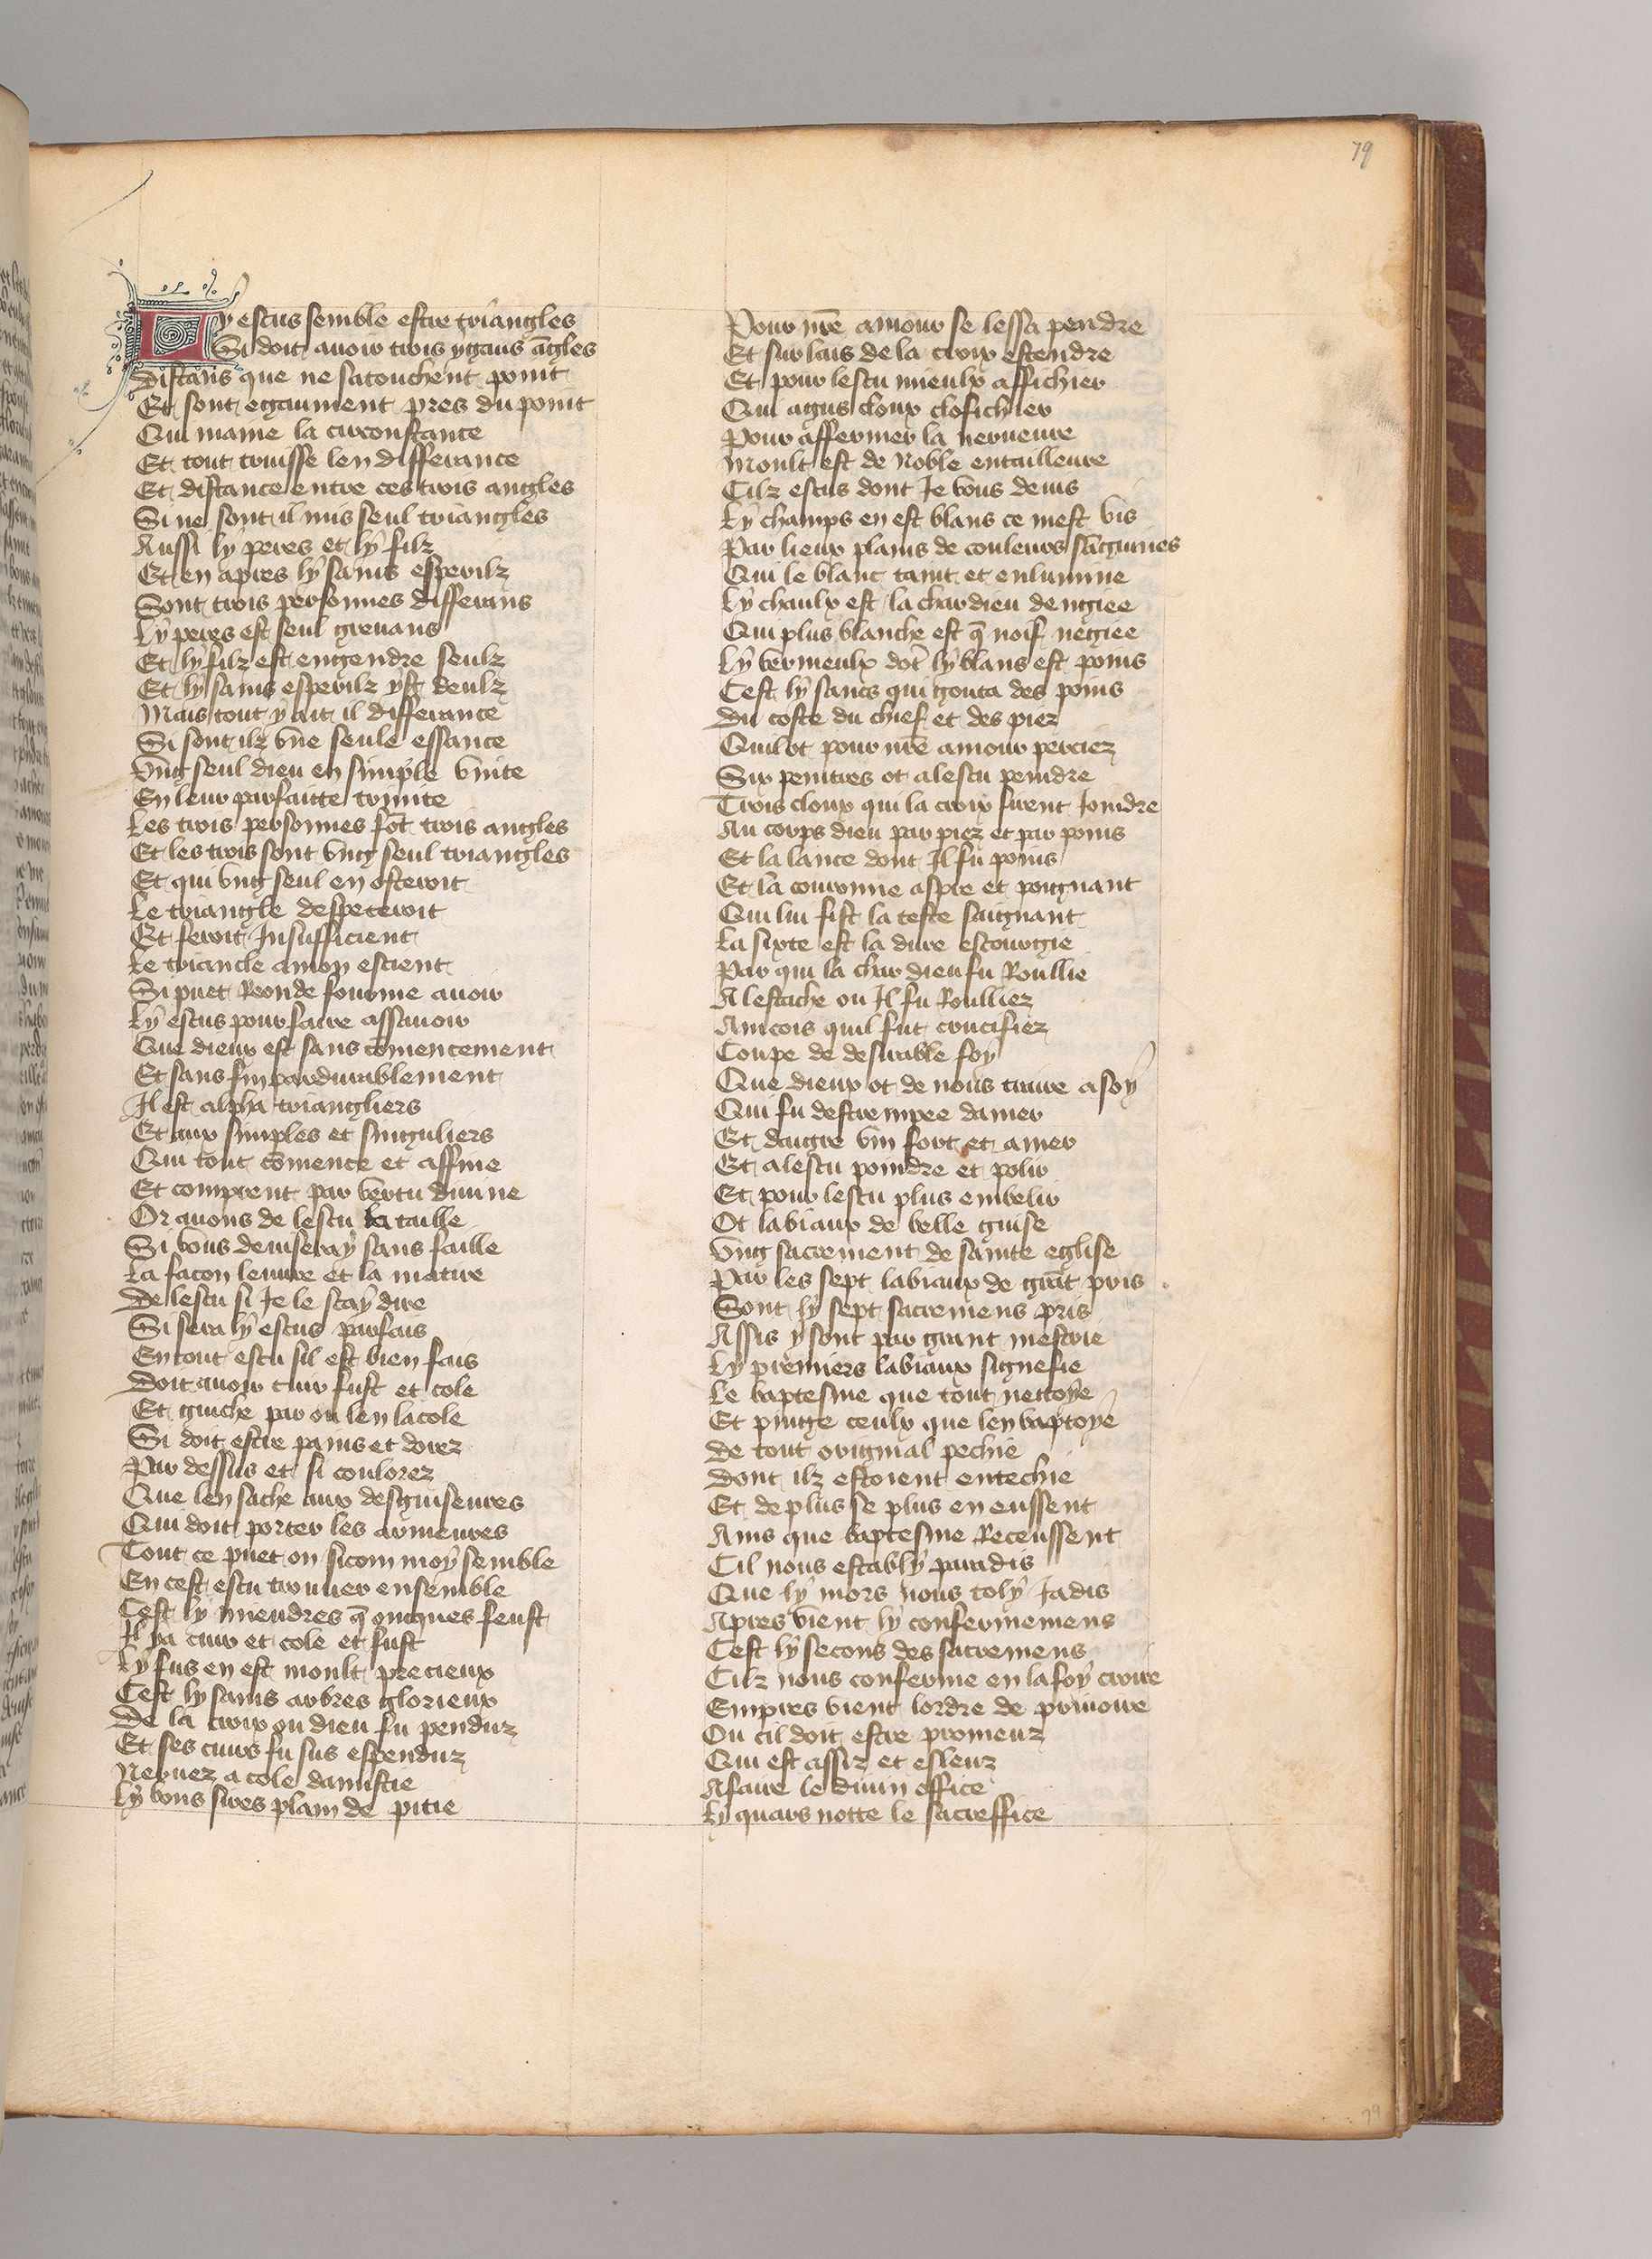 79
Ly escus semble estre triangles
Si doit avoir trois ygaus āgles
Distans que ne satouchent point
Et sont egaument pres du point
Qui maine la circonstance
Et tout truisse len differance
Et distance entre ces trois angles
Si ne sont il mis seul triangles
Aussi ly peres et ly filz
Et en apres ly sains esperilz
Sont trois personnes differans
Ly peres est seul grevans
Et ly filz est engendre seulz
Et ly sains esperilz yst deulz
Mais tout y ait il differance
Si sont ilz vne seule essance
Vng seul dieu en simple vnite
En leur parfaitte trinite
Les trois personnes sōt trois angles
Et les trois sont vng seul triangles
Et qui vng seul en osteroit
Le triangle despeceroit
Et feroit Insufficient
Le triancle a mon escient
Si puet Reonde fourme avoir
Ly escus pour faire assavoir
Que dieux est sans cōmencement
Et sans fin pardurablement
Il est alpha triangliers
Et aux simples et singuliers
Qui tout cōmence et affine
Et comprent par vertu divine
Or avons de lescu la taille
Si vous deviseray sans faille
La facon leuvre et la matire
De lescu si Je le scay dire
Si sera ly escus parfais
En tout escu sil est bien fais
Doit avoir cuir fust et cole
Et guiche par ou len lacole
Si doit estre pains et dorez
Par dessus et si coulorez
Que len sache aux desguiseures
Qui doit porter les armeures
Tout ce puet on sicom moy semble
En cest escu trouver ensemble
Cest ly miendres q̄ oncques feust
Il ya cuir et cole et fust
Ly fus en est moult precieux
Cest ly sains arbres glorieux
De la croix ou dieu fu penduz
Et ses cuirs fu sus espenduz
Nervez a cole damistie
Ly bons sires plain de pitie
Pour nr̄e amour se lessa pendre
Et sur lais de la croix estendre
Et pour lescu mieulx affichier
Qui agus cloux clofichier
Pour affermer la nerveure
Moult est de Noble entailleure
Cilz escus dont Je vous devis
Ly champs en est blans ce mest vis
Par lieux plains de couleurs sāguines
Qui le blanc taint et enlumine
Ly chaulx est la char dieu dengiee
Qui plus blanche est q̄ noif negiee
Ly vermeulx dōt ly blans est poins
Cest ly sancs qui gouta des poins
Du coste du chief et des piez
Quil ot pour nr̄e amour perciez
Six peintres ot a lescu peindre
Trois cloux qui la croix firent Joindre
Au corps dieu par piez et par poins
Et la lance dont Il fu poins
Et la couronne aspre et poignant
Qui lui fist la teste saignant
La sixte est la dure escourgie
Par qui la char dieu fu Roullie
A lestache ou Il fu Roulliez
Aincois quil fut crucifiez
Coupe de desirable soy
Que dieux ot de nous traire a soy
Qui fu destrempee damer
Et daigre vin fort et amer
Et a lescu poindre et polir
Et pour lescu plus embelir
Ot labiaux de belle guise
Vng sacrement de sainte eglise
Par les sept labiaux de grāt pris
Sont ly sept sacremens pris
Assis y sont par grant mestrie
Ly premiers labiaux signefie
Le baptesme que tout nettoye
Et purge ceulx que len baptoye
De tout original pechie
Dont ilz estoient entechie
Et de plus se plus en eussent
Ains que baptesme Receussent
Cil nous estably paradis
Que ly mors nous toly Jadis
Apres vient ly confermemens
Cest ly secons des sacremens
Cilz nous conferme en la foy croire
Empres vient lordre de prinoire
Ou cil doit estre promeuz
Qui est assiz et esleuz
A faire le divin office
Ly quars notte le sacreffice
79